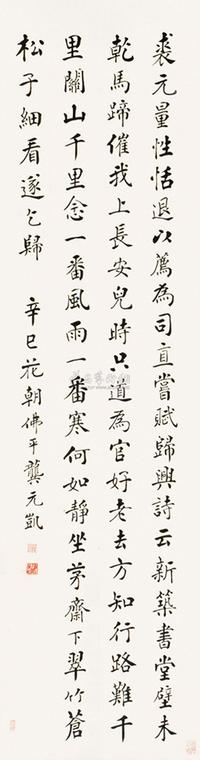 裘元量性恬退以薦為司直嘗賦歸興詩云新築書堂壁未
乾馬蹄催我上長安兒時只道為官好老去方知行路難千
里關山千里念一番風雨一番寒何如靜坐茅齋下翠竹蒼
松子細看遂乞歸
辛巳花朝佛平龔元凱